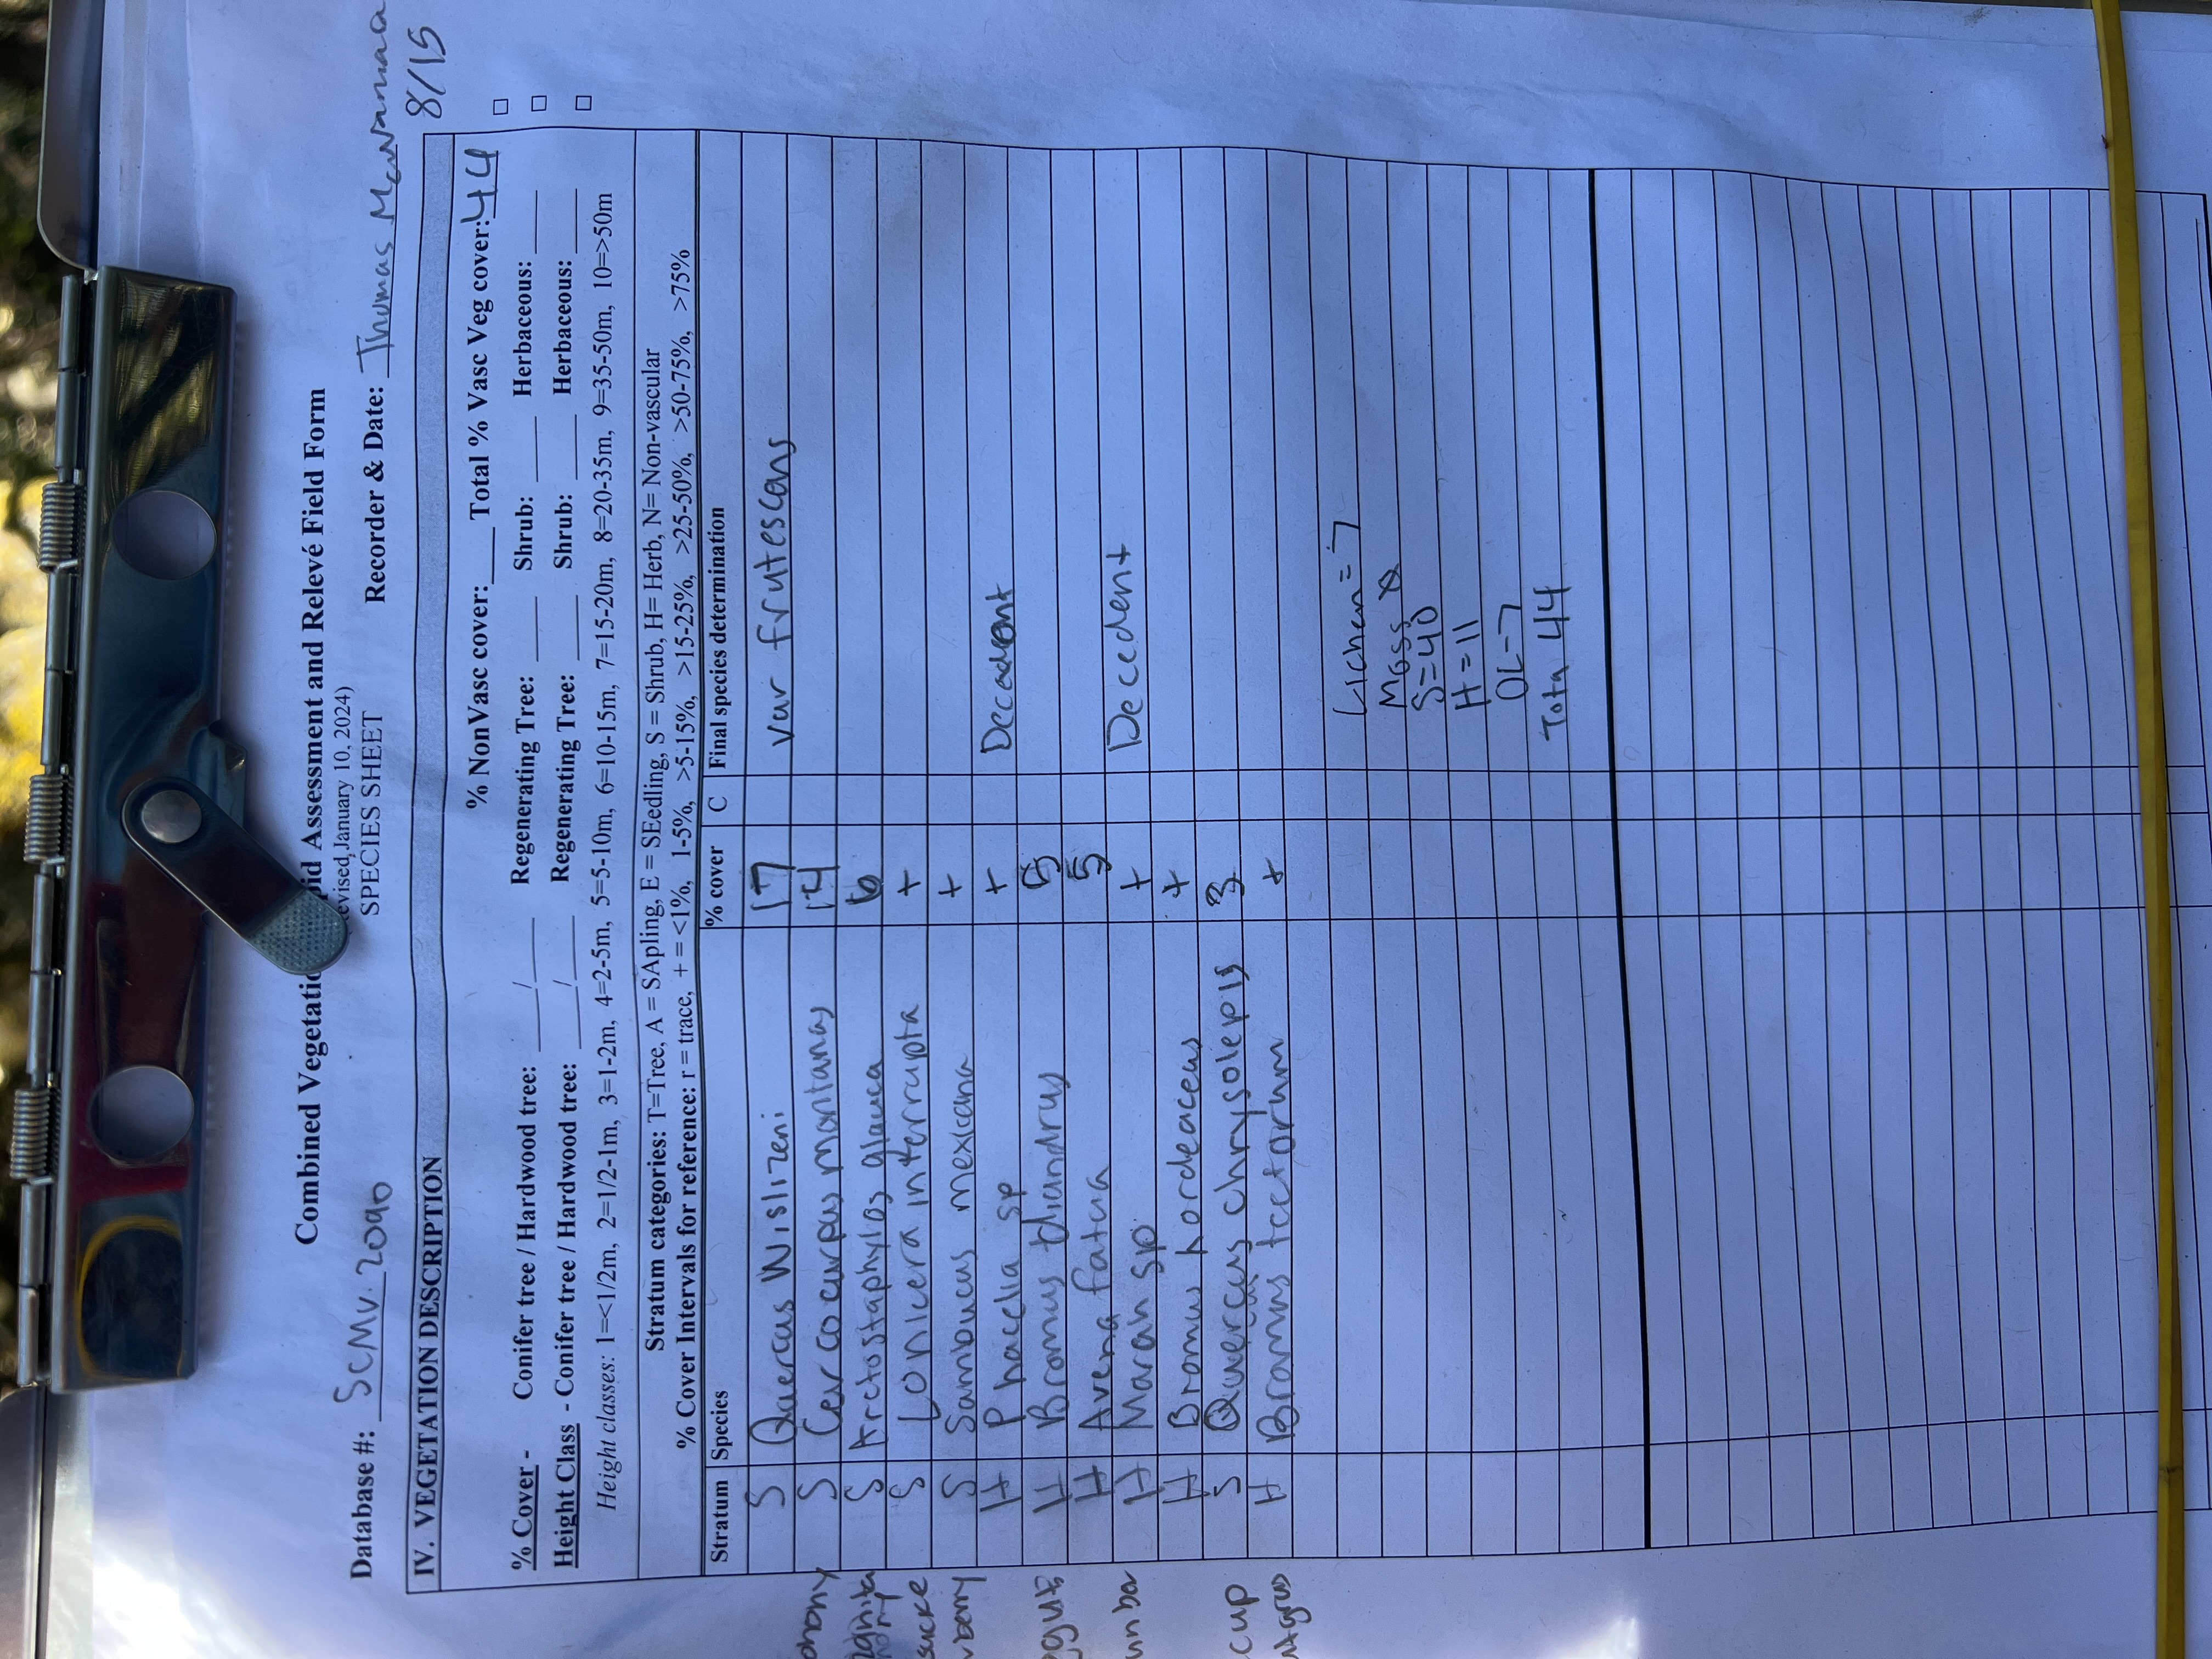 Combined Vegetation Assessment and Relevé Field Form
evised January 10, 2024)
SPECIES SHEET
Database #: SCMV. 2090
Recorder & Date: Thomas
8/15
IV. VEGETATION DESCRIPTION
% NonVasc cover:____ Total % Vasc Veg cover: 44
% Cover - Conifer tree / Hardwood tree: ____/____ Regenerating Tree: ____ Shrub: ____ Herbaceous: ____ □
□
Height Class - Conifer tree / Hardwood tree: ____/____ Regenerating Tree: ____ Shrub: ____ Herbaceous: ____ □
Height classes: 1=<1/2m, 2=1/2-1m, 3=1-2m, 4=2-5m, 5=5-10m, 6=10-15m, 7=15-20m, 8=20-35m, 9=35-50m, 10=>50m
Stratum categories: T=Tree, A = SApling, E = SEedling, S = Shrub, H= Herb, N= Non-vascular
% Cover Intervals for reference: r = trace, + = <1%, 1-5%, >5-15%, >15-25%, >25-50%, >50-75%, >75%
Stratum Species % cover C Final species determination
S Quercus Wislizeni 17 var frutescans
ohony S Cercocarpus montanas 14
S Arctostaphylos glauca 6
S Lonicera interrupta +
S Sambucus mexicana +
H Phacelia sp + Decadent
H Bromus diandrus 5
H Avena fatua 5
H Marah sp + Decedent
H Bromus hordeaceus +
cup S Quercus chrysolepis 3
H Bromus tectorum +
Lichen=7
Moss
S=40
H=11
OL-7
Tota 44